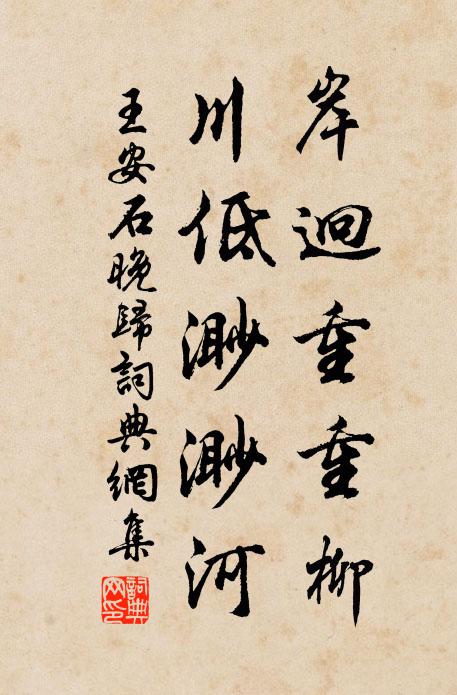 岸迥重重柳
川低渺渺河
王安石晚歸詞典網集
詞典網印